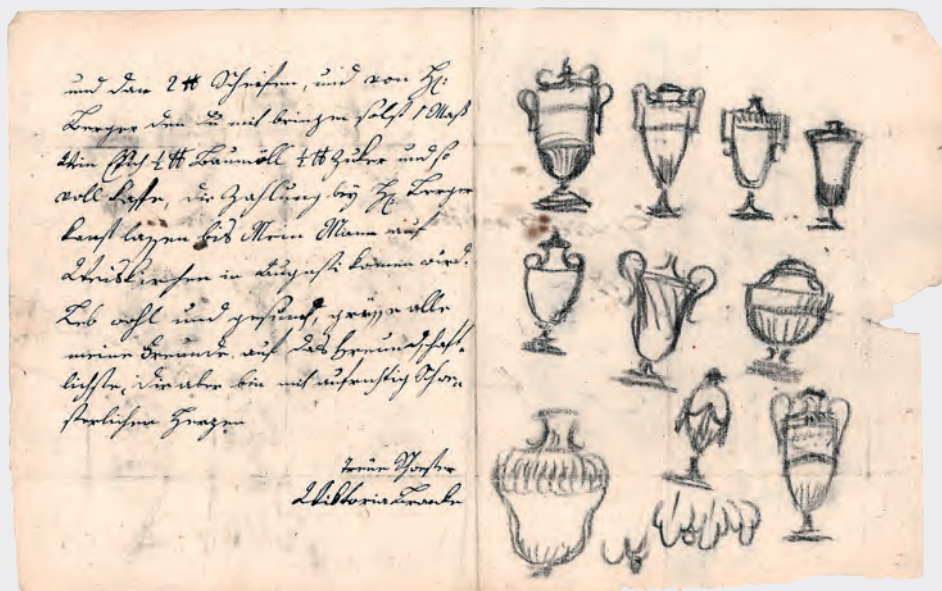 und dan 2 ℔ Schrifen, und von H:
Berger den du mit bringen solst 1 Maß
Wein Essich ½ ℔ Baumöll ½ ℔ Zuker und so
voll Kaffe, die Zahlung bey H: Berger
kanst lassen bis Mein Mann auf
Weiskirchen in Augusti komen wird.
Leb wohl und gesund, grüsse alle
meine Freunde auf das Freundschaft-
lichste, dir aber bin mit aufrichtig Schwe-
sterlichen Herzen
treue Schwester
Viktoria